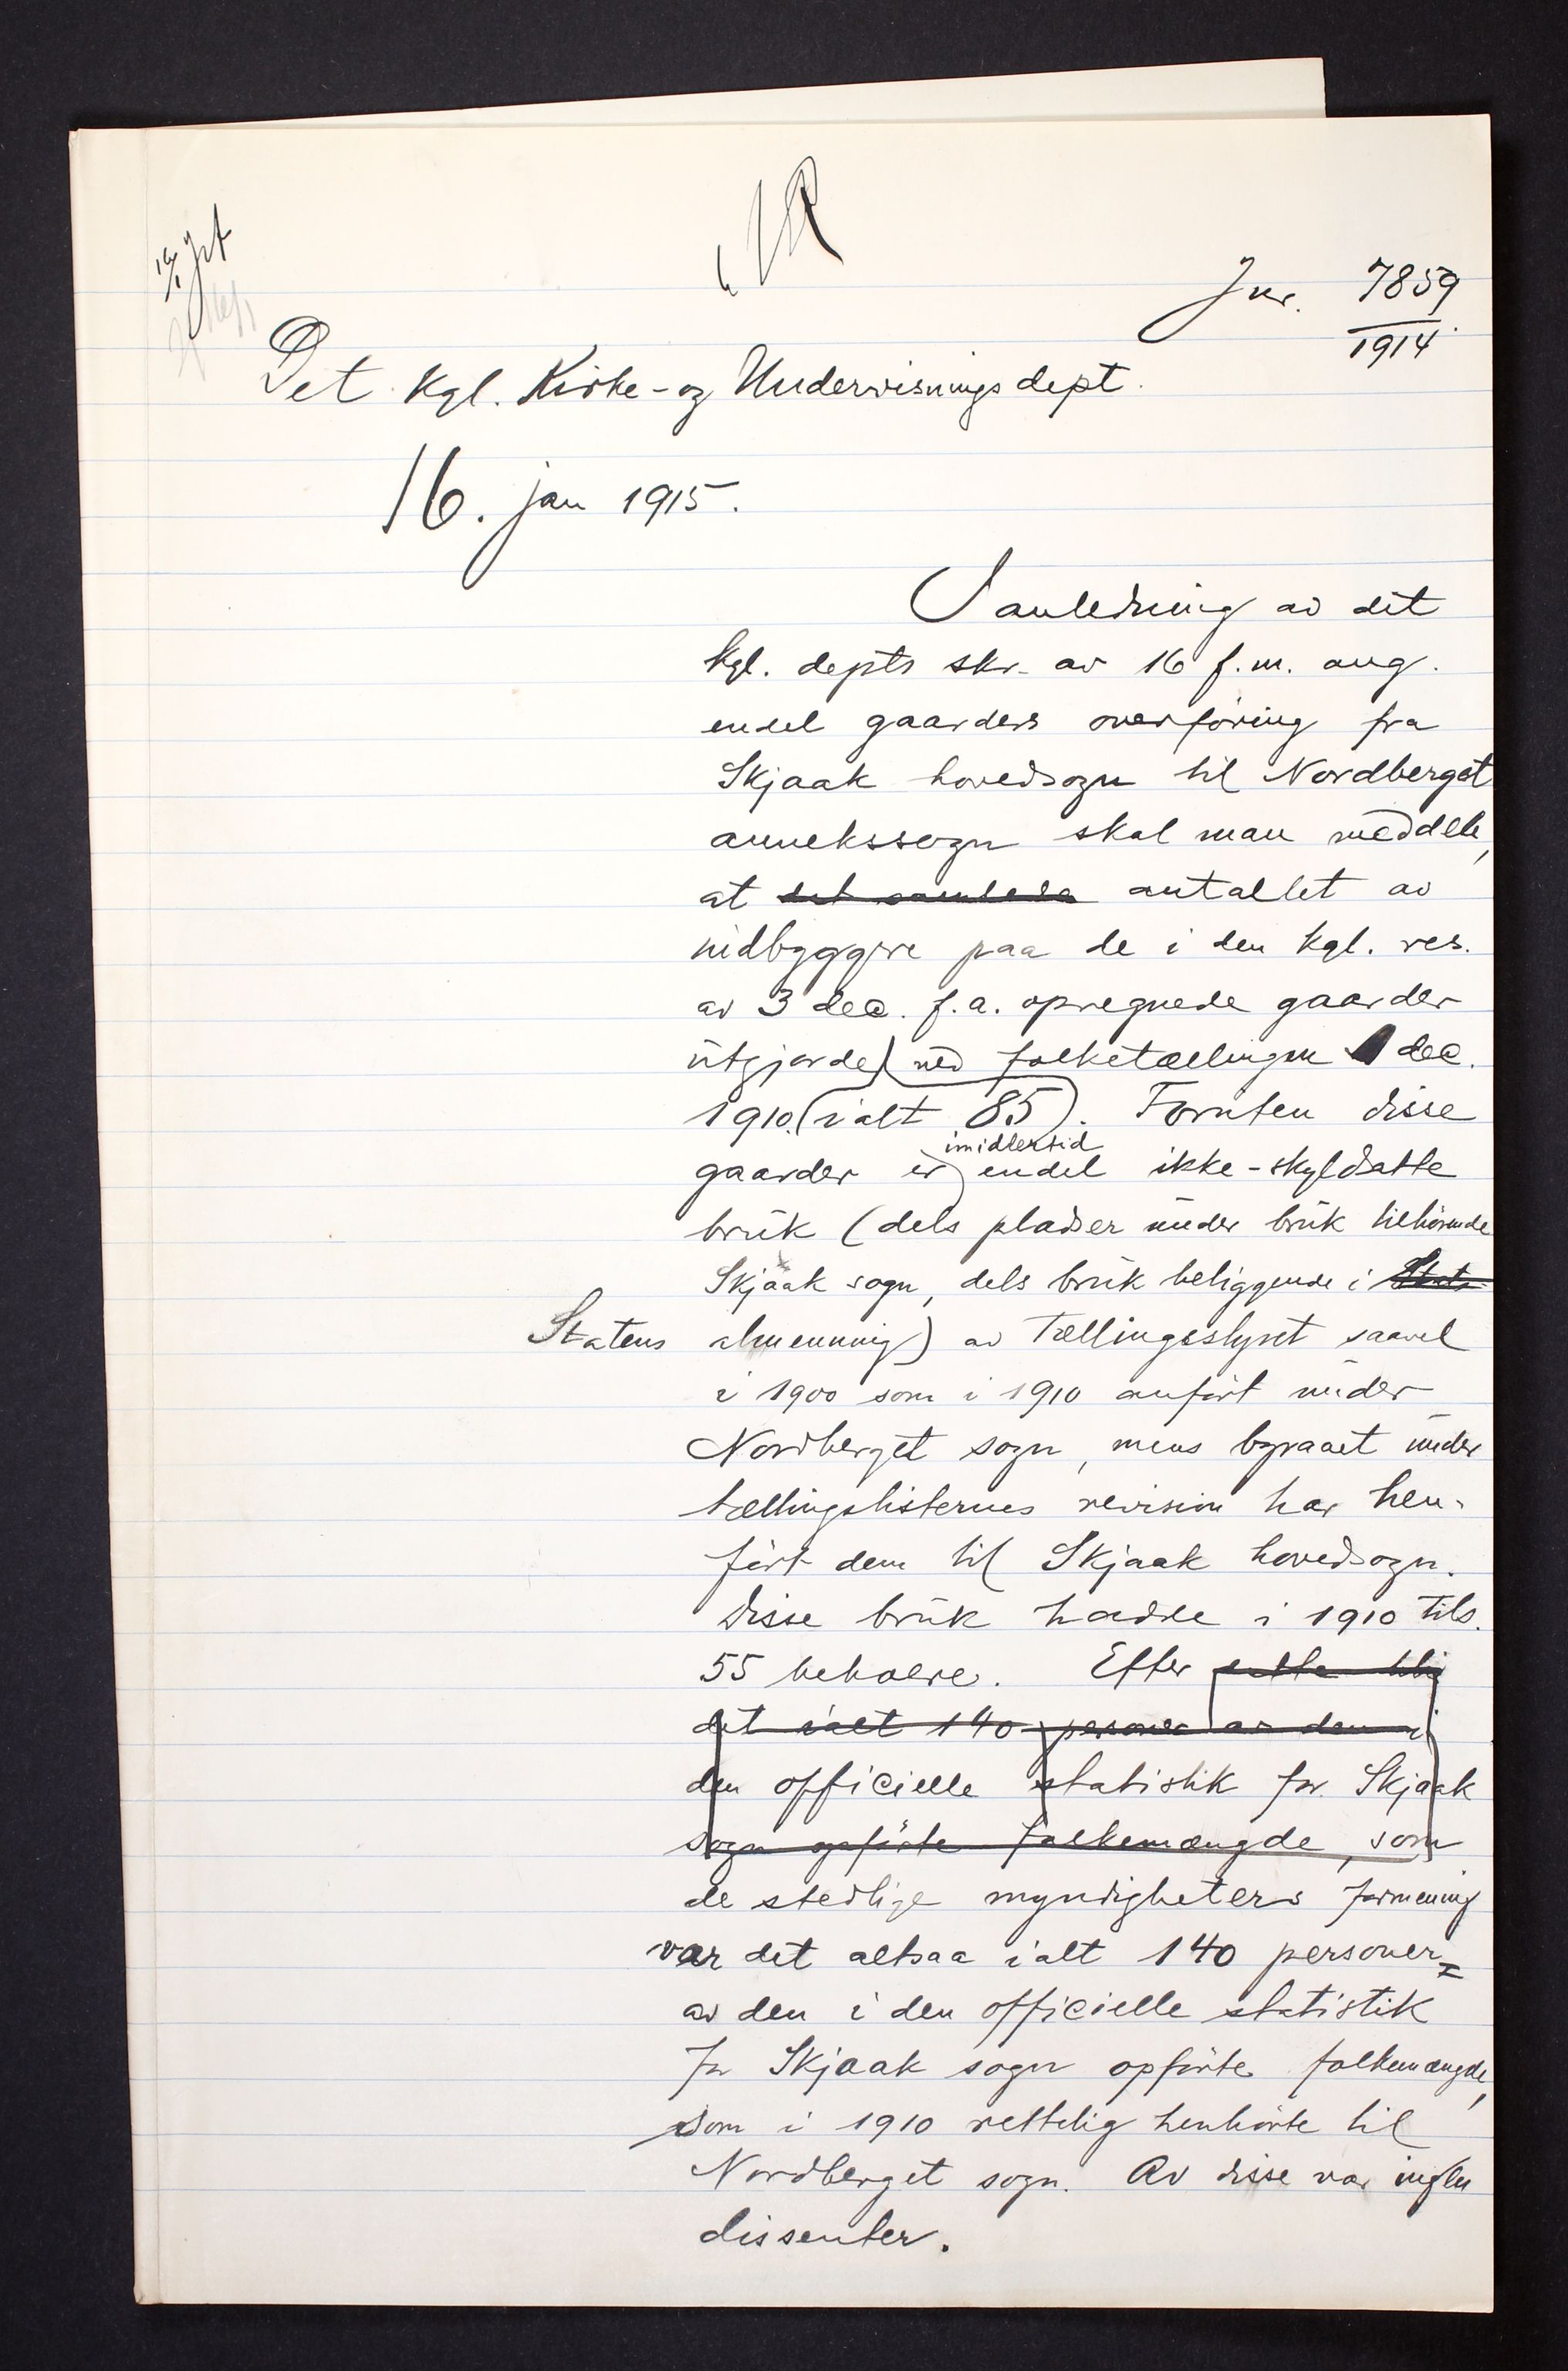 Jnr. 7859
1914
Det Kgl. Kirke- og Undervisningsdept.
16. jan 1915.
I anledning av det
kgl. depts skr. av 16 f.m. ang.
endel gaarders overföring fra
Skjaak hovedsogn til Nordberget
annekssogn skal man meddele,
at det samlede antallet av
indbyggere paa de i den kgl. res.
av 3 dec. f.a. opregnede gaarder
utgjorde ved folketællingen 1 dec.
1910 (ialt 85). Foruten disse
imidlertid
gaarder er endel ikke-skyldsatte
bruk (dels pladser under bruk tilhörende
Skjaak sogn, dels bruk beliggende i Stats-
Statens almenning) av Tællingsstyret saavel
i 1900 som i 1910 anfört under
Nordberget sogn, mens byraaet under
tællingslisternes revision har hen-
fört dem til Skjaak hovedsogn.
Disse bruk hadde i 1910 tils.
55 beboere. Efter dette blir
det ialt 140 personer av den i
den officielle statistik for Skjaak
sogn opförte folkemængde, som
de stedlige myndigheters formening
var det altsaa ialt 140 personer
av den i den officielle statistik
for Skjaak sogn opförte folkemængde,
som i 1910 rettelig henhörte til
Nordberget sogn. Av disse var ingen
dissenter.